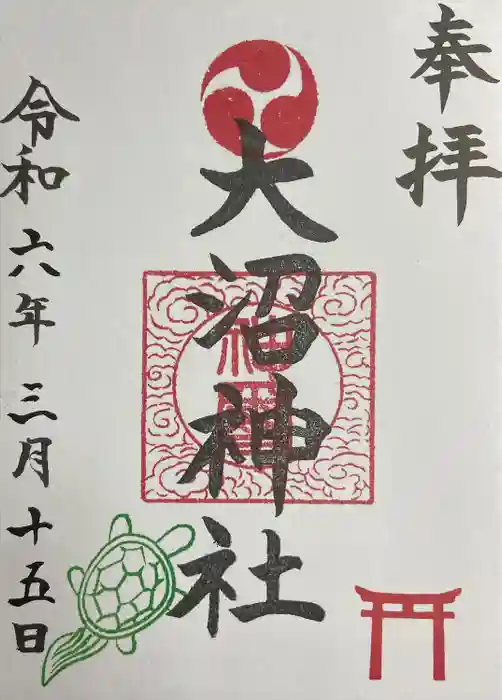 奉拝
大沼神社
令和六年三月十五日